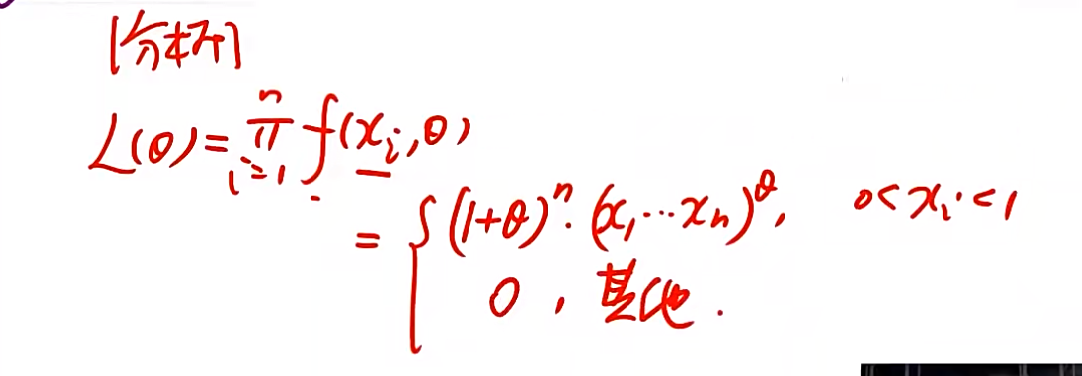 [分析]
L(θ)=∏_{i=1}^{n} f(x_i,θ)
= { (1+θ)^n·(x_1…x_n)^θ, 0<x_i<1
0,其他.